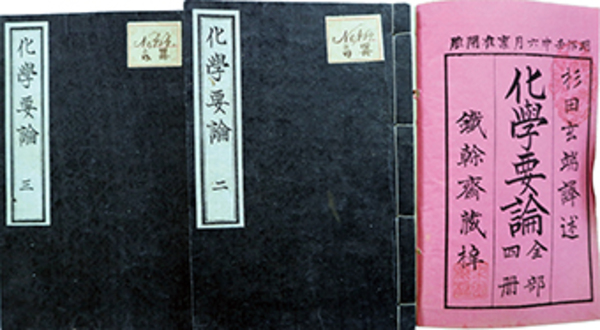 化學要論 三
化學要論 二
六月
杉田玄端譯述
化學要論 全部四册
鐵幹齋藏梓